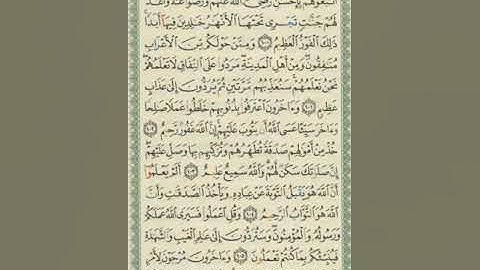 اتَّبَعُوهُم بِإِحْسَٰنٍ رَّضِيَ اللَّهُ عَنْهُمْ وَرَضُوا عَنْهُ وَأَعَدَّ
لَهُمْ جَنَّٰتٍ تَجْرِي تَحْتَهَا الْأَنْهَٰرُ خَٰلِدِينَ فِيهَا أَبَدًا
ذَٰلِكَ الْفَوْزُ الْعَظِيمُ ١٠٠ وَمِمَّنْ حَوْلَكُم مِّنَ الْأَعْرَابِ
مُنَٰفِقُونَ وَمِنْ أَهْلِ الْمَدِينَةِ مَرَدُوا عَلَى النِّفَاقِ لَا تَعْلَمُهُمْ
نَحْنُ نَعْلَمُهُمْ سَنُعَذِّبُهُم مَّرَّتَيْنِ ثُمَّ يُرَدُّونَ إِلَىٰ عَذَابٍ
عَظِيمٍ ١٠١ وَءَاخَرُونَ اعْتَرَفُوا بِذُنُوبِهِمْ خَلَطُوا عَمَلًا صَٰلِحًا
وَءَاخَرَ سَيِّئًا عَسَى اللَّهُ أَن يَتُوبَ عَلَيْهِمْ إِنَّ اللَّهَ غَفُورٌ رَّحِيمٌ ١٠٢
خُذْ مِنْ أَمْوَٰلِهِمْ صَدَقَةً تُطَهِّرُهُمْ وَتُزَكِّيهِم بِهَا وَصَلِّ عَلَيْهِمْ
إِنَّ صَلَوٰتَكَ سَكَنٌ لَّهُمْ وَاللَّهُ سَمِيعٌ عَلِيمٌ ١٠٣ أَلَمْ يَعْلَمُوا
أَنَّ اللَّهَ هُوَ يَقْبَلُ التَّوْبَةَ عَنْ عِبَادِهِ وَيَأْخُذُ الصَّدَقَٰتِ وَأَنَّ
اللَّهَ هُوَ التَّوَّابُ الرَّحِيمُ ١٠٤ وَقُلِ اعْمَلُوا فَسَيَرَى اللَّهُ عَمَلَكُمْ
وَرَسُولُهُ وَالْمُؤْمِنُونَ وَسَتُرَدُّونَ إِلَىٰ عَٰلِمِ الْغَيْبِ وَالشَّهَٰدَةِ
فَيُنَبِّئُكُم بِمَا كُنتُمْ تَعْمَلُونَ ١٠٥ وَءَاخَرُونَ مُرْجَوْنَ لِأَمْرِ